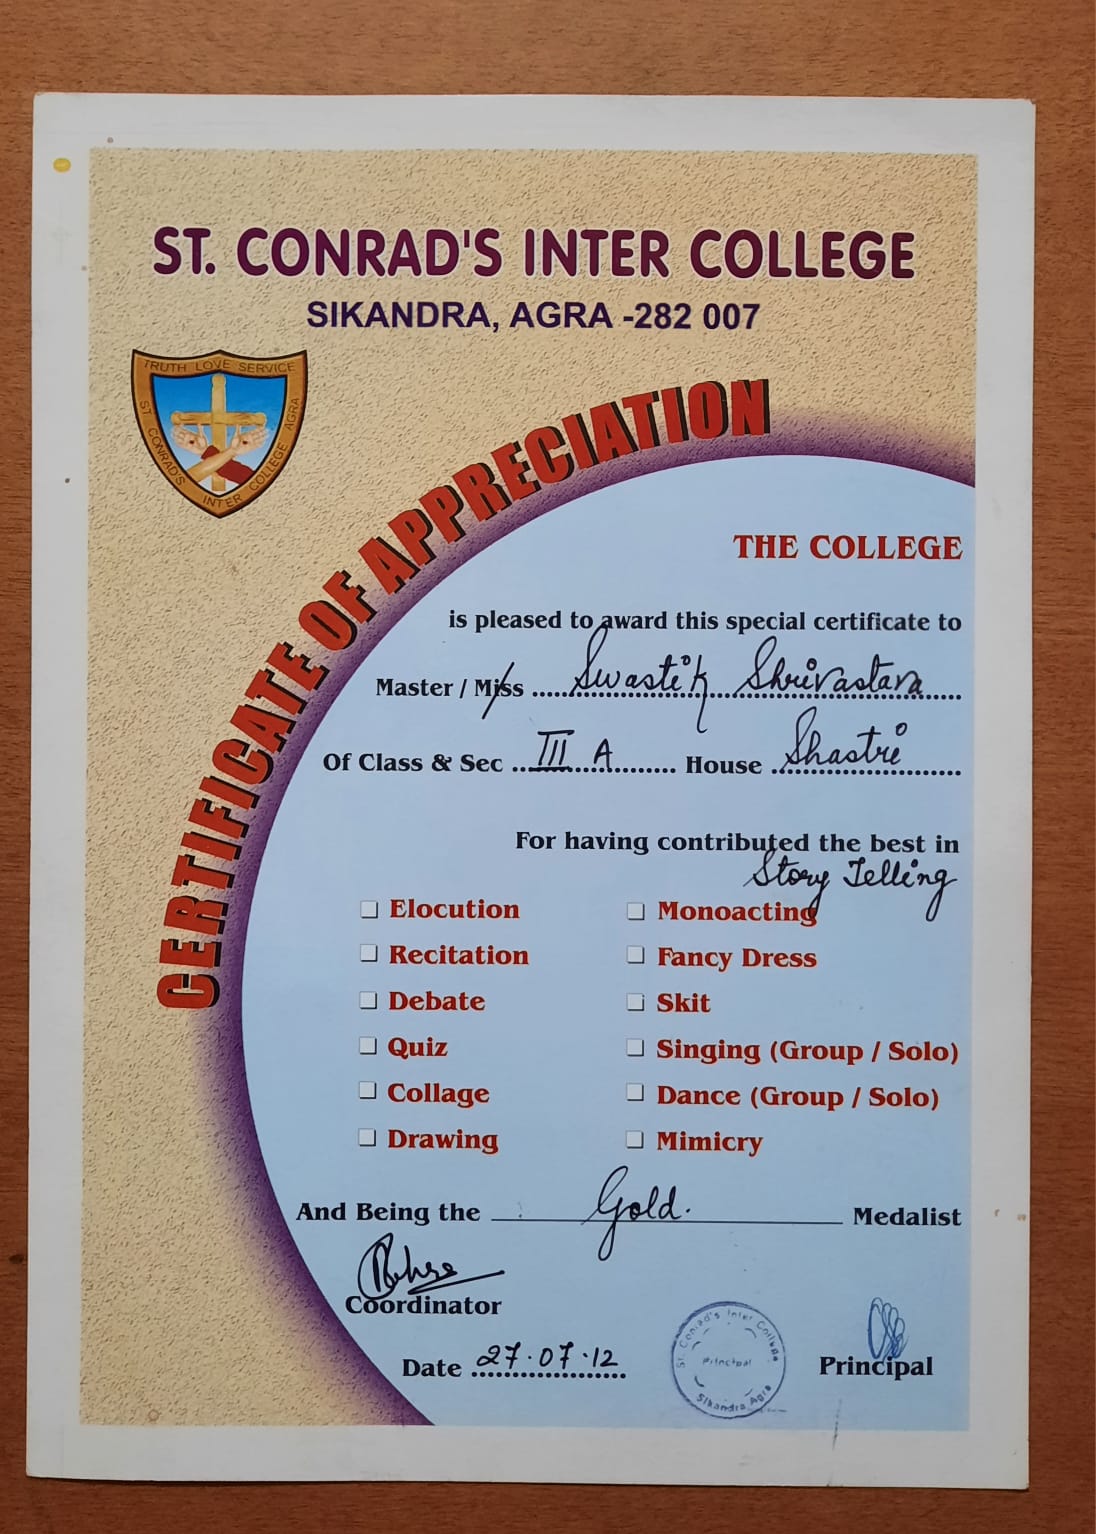 ST. CONRAD'S INTER COLLEGE
SIKANDRA, AGRA -282 007
TRUTH LOVE SERVICE
ST. CONRAD'S INTER COLLEGE AGRA
CERTIFICATE OF APPRECIATION
THE COLLEGE
is pleased to award this special certificate to
Master / Miss Swastik Shrivastava
Of Class & Sec III A House Shastri
For having contributed the best in
Story Telling
Elocution Monoacting
Recitation Fancy Dress
Debate Skit
Quiz Singing (Group / Solo)
Collage Dance (Group / Solo)
Drawing Mimicry
And Being the Gold. Medalist
Coordinator
Date 27.07.12
St. Conrad's Inter College
Principal
Sikandra Agra
Principal